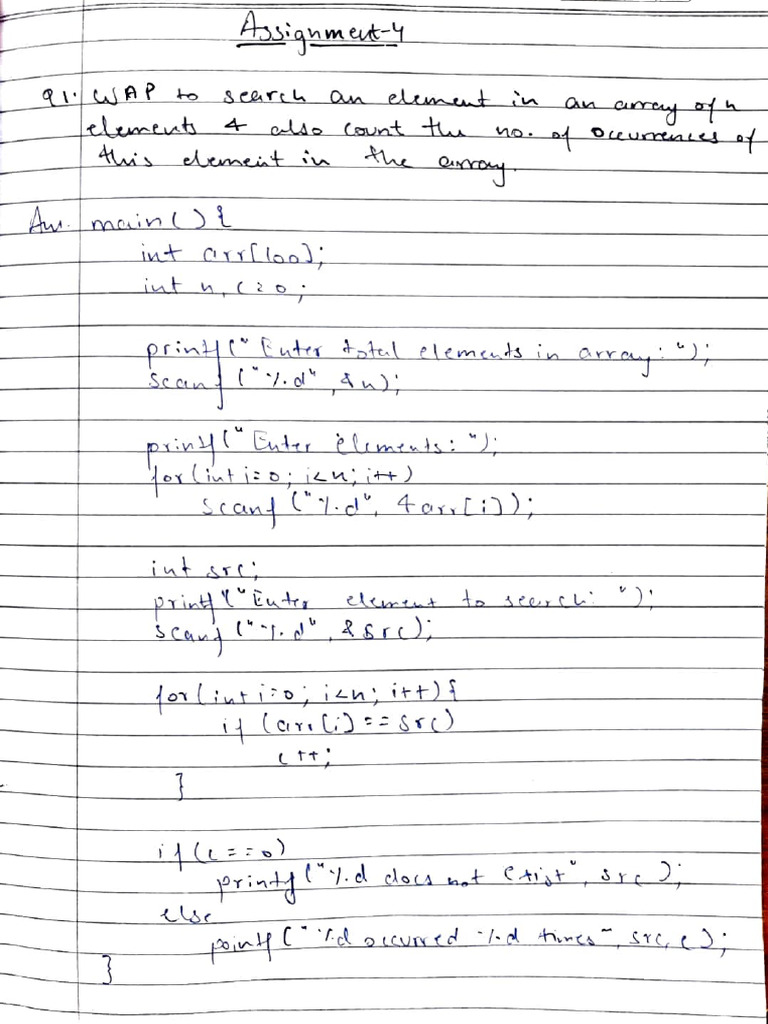 Assignment-4
Q1. WAP to search an element in an array of n
elements & also count the no. of occurrences of
this element in the array.
Ans. main() {
int arr[100];
int n, c=0;
printf(" Enter total elements in array: ");
scanf ("%d", &n);
printf("Enter elements: ");
for(int i=0; i<n; i++)
scanf ("%d", &arr[i]);
int src;
printf("Enter element to search: ");
scanf ("%d", &src);
for(int i=0; i<n; i++) {
if (arr[i] == src)
c++;
}
if (c==0)
printf("%d does not exist", src);
else
printf("%d occurred %d times", src, c);
}